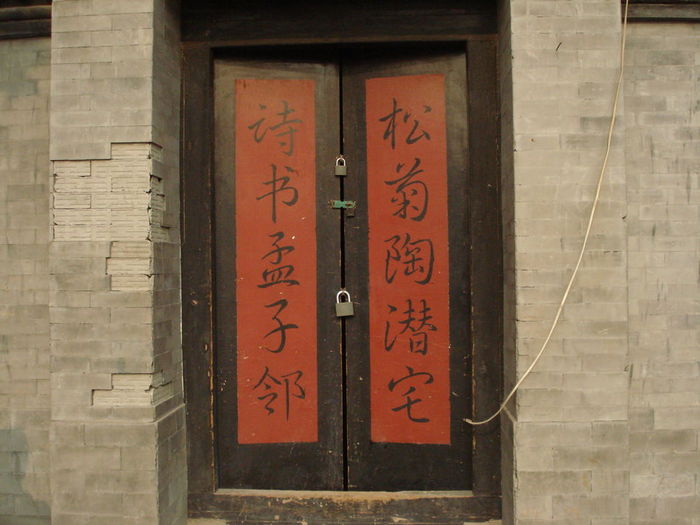 松菊陶潜宅
诗书孟子邻